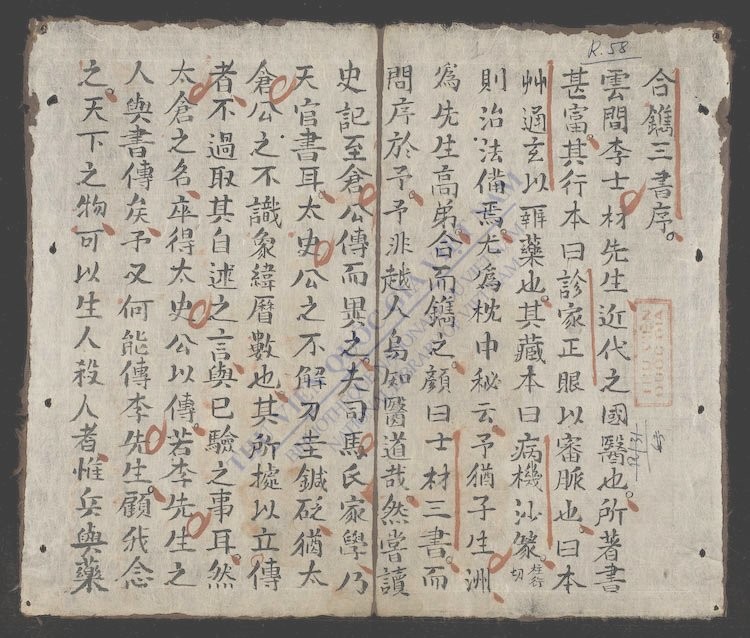 R.58
合鐫三書序。
雲間李士材先生近代之國醫也。所著書
甚富。其行本曰診家正眼以審脈也。曰本
艸通玄以辨藥也。其藏本曰病機沙篆。
則治法備焉尤爲枕中秘云予猶子生洲
爲先生高弟合而鐫之。顏曰士材三書。而
問序於予。予非越人烏知醫道哉。然嘗讀
史記至倉公傳而異之。夫司馬氏家學乃
天官書耳。太史公之不解刀圭鍼砭猶太
倉公之不識象緯曆數也其所據以立傳
者不過取其自述之言與已驗之事耳。然
太倉之名卒得太史公以傳。若李先生之
人與書傳矣。予又何能傳李先生。顧我念
之。天下之物可以生人殺人者惟兵與藥
THƯ VIỆN QUỐC GIA VIỆT NAM
BIBLIOTHÈQUE NATIONALE DU VIETNAM
NATIONAL LIBRARY OF VIETNAM